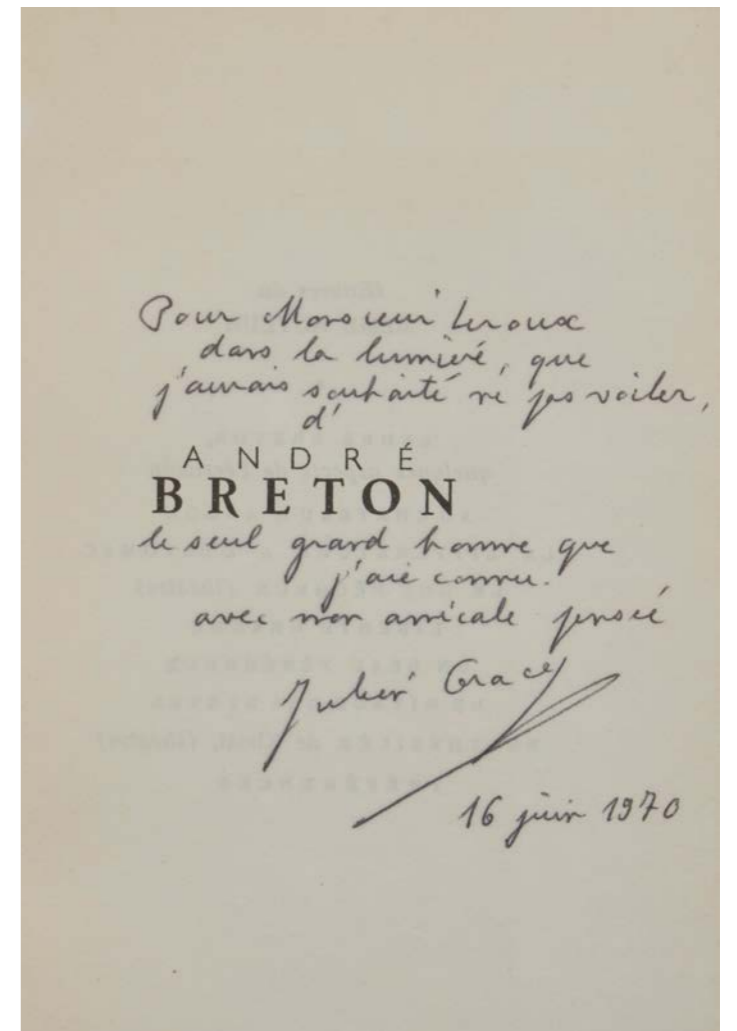 Pour Monsieur Leroux
dans la lumière, que
j'aurais souhaité ne pas voiler,
d'
ANDRÉ
BRETON
le seul grand homme que
j'aie connu.
avec mon amicale pensée
Julien Gracq
16 juin 1970